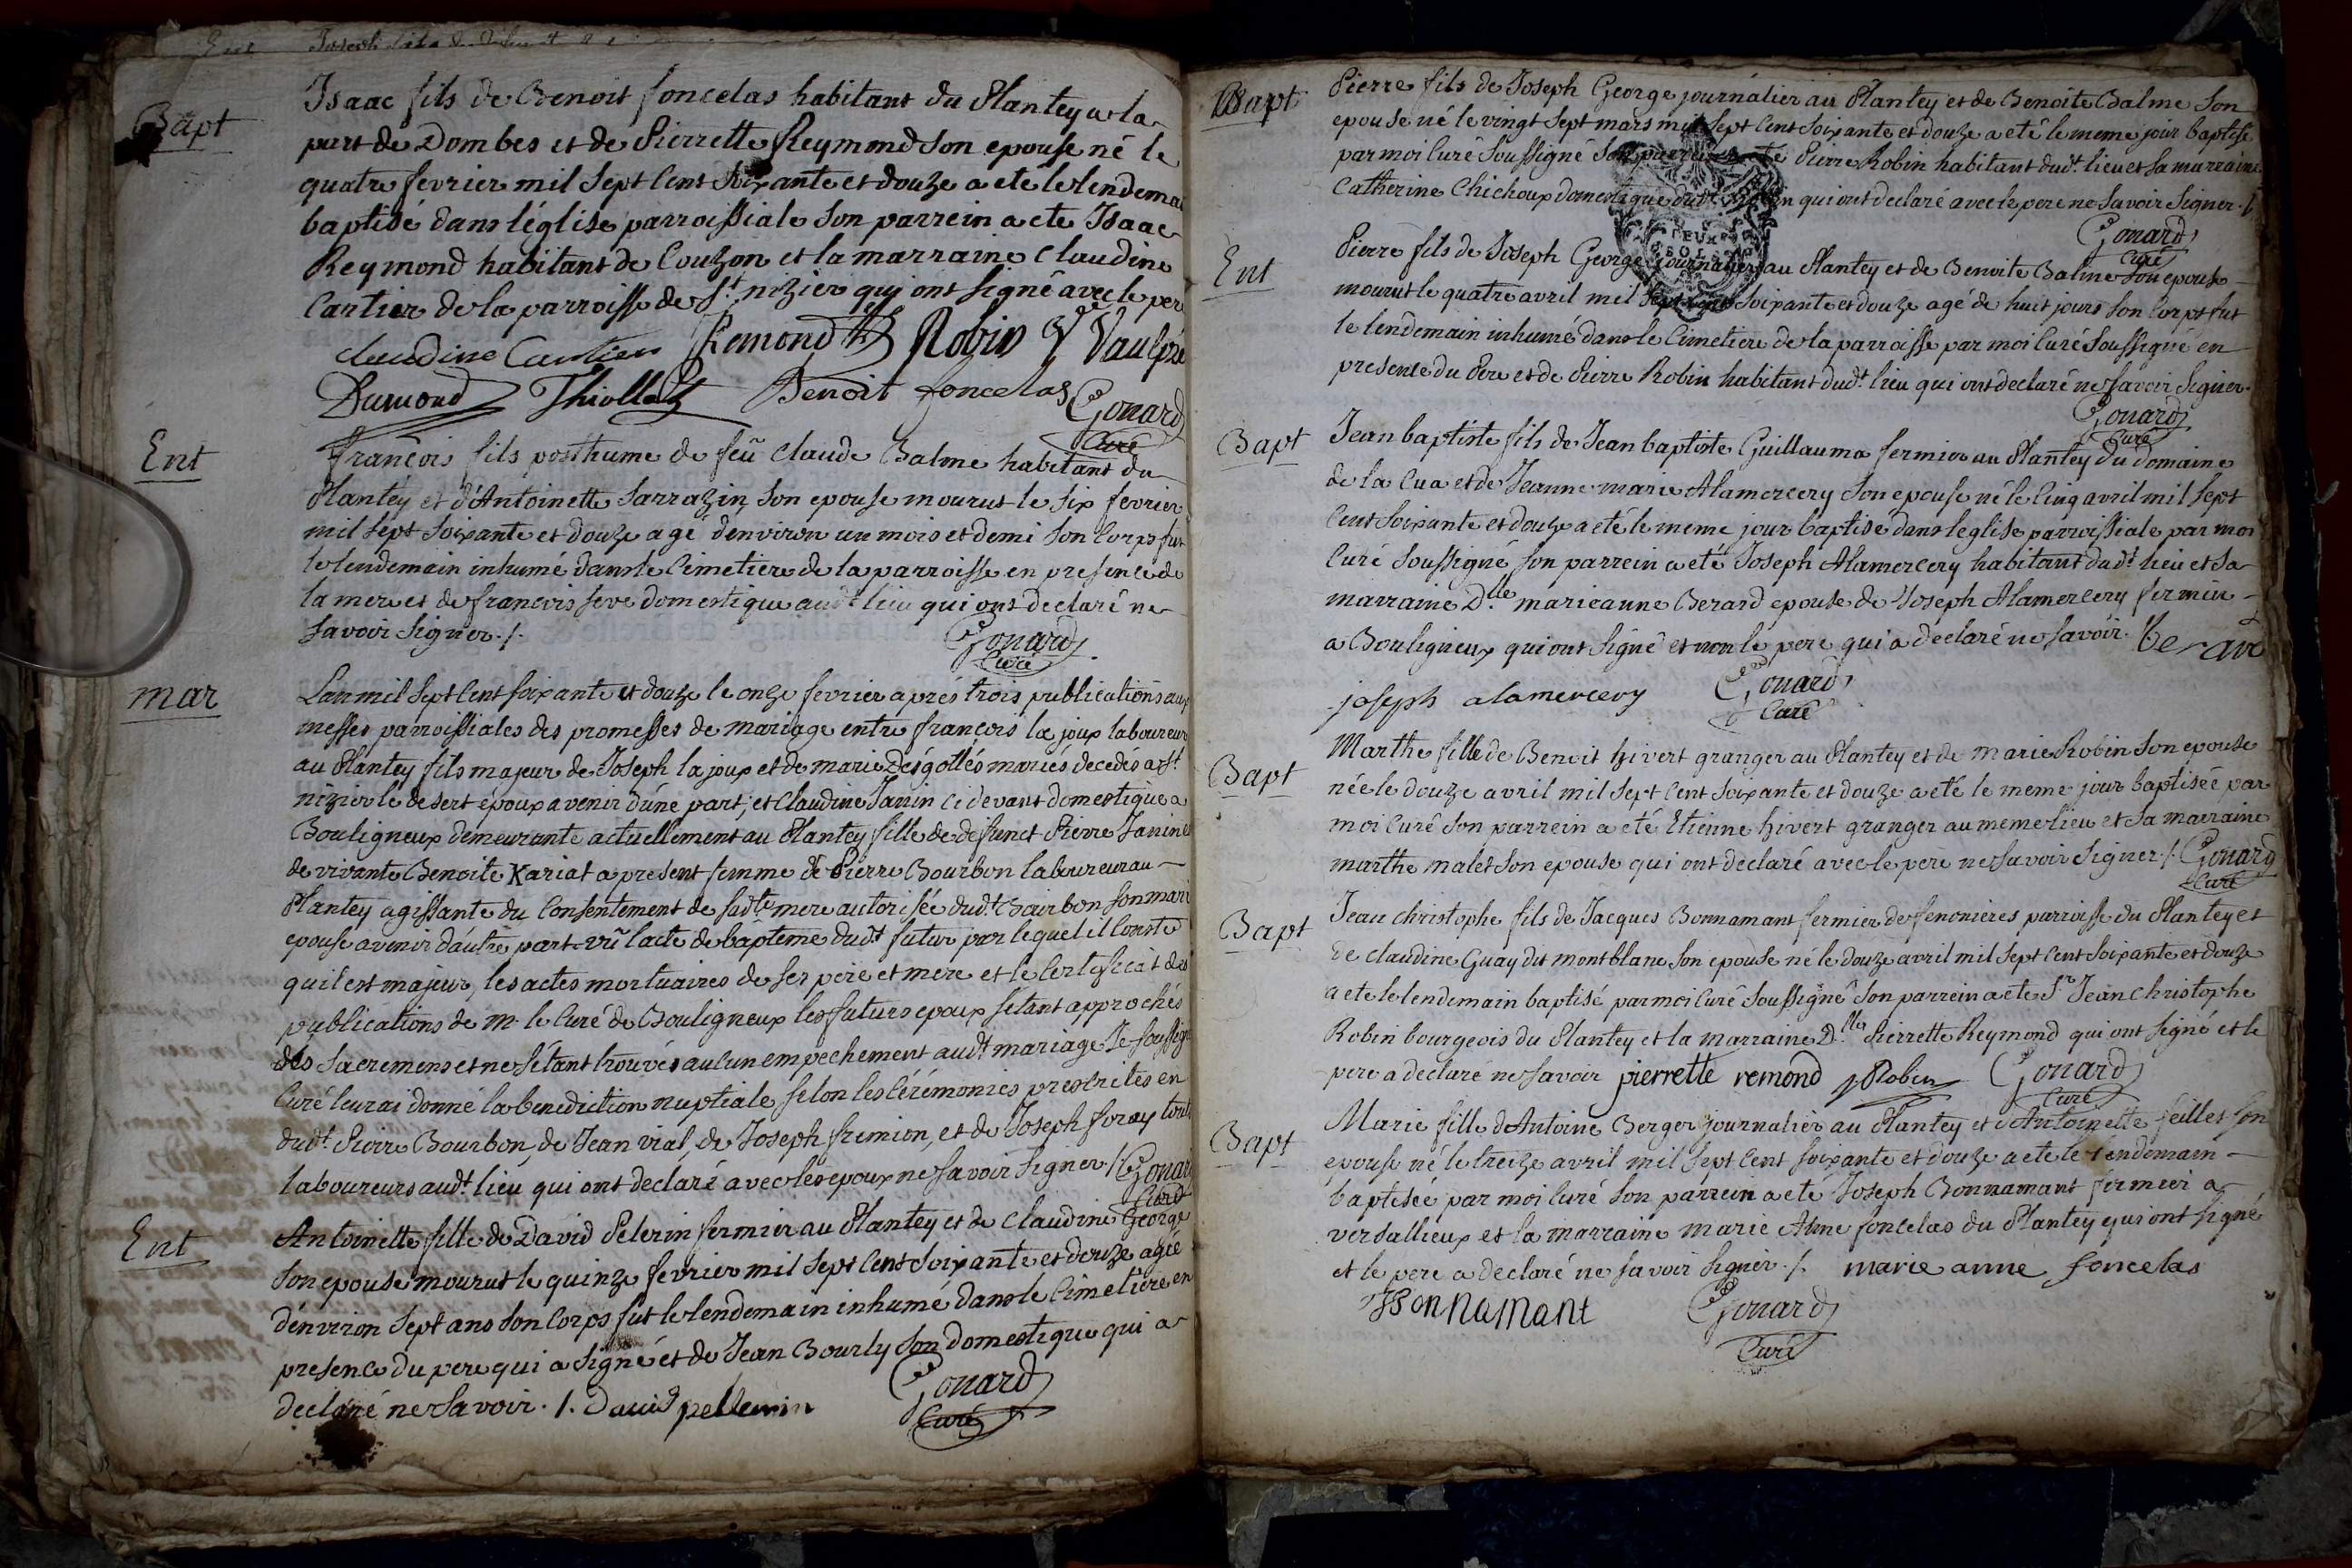 Bapt
Isaac fils de Benoit foncelas habitant du Plantey a la
part de Dombes et de Pierrette Reymond son epouse né le
quatre fevrier mil sept cent soixante et douze a eté le lendemai
baptisé dans léglise parroissiale son parrein a ete Isaac
Reymond habitant de Couzon et la marraine Claudine
Cartier de la parroisse de St. nizier qui ont signé avec le per
claudine Cartier Remond Robin Vaulpré
Dumond Thiollet Benoit foncelas Gonard
Curé
Ent
françois fils posthume de feû Claude Balme habitant du
Plantey et d'Antoinette Sarrazin son epouse mourut le six fevrier
mil sept soixante et douze agé denviron un mois et demi son corps fut
le lendemain inhumé dans le Cimetiere de la parroisse en presence de
la mere et de francois seve domestique audt. lieu qui ont declaré ne
savoir signer ./.
Gonard
Curé
mar
Lan mil sept cent soixante et douze le onze fevrier aprés trois publications aux
messes parroissiales des promesses de mariage entre françois la joux laboureur
au Plantey fils majeur de Joseph la joux et de marie Desgottes mariés decedés a St.
nizier le desert époux avenir dúne part; et Claudine Janin ci devant domestique a
Bouligneux demeurante actuellement au Plantey fille de défunct Pierre Janin et
de vivante Benoite Kariat a present femme de Pierre Bourbon laboureur au
Plantey agissante du consentement de sadte. mere autorisée dudt. Bourbon son mari
epouse avenir dáutre part vû lacte de bapteme dudt. futur par lequel il conste
quil est majeur, les actes mortuaires de ses pere et mere et le certificat des
publications de m. le Curé de Bouligneux les futurs epoux sétant approchés
dés Sacremens et ne sétant trouvés aucun empechement audt mariage Je soussigné
Curé leur ai donné la benediction nuptiale selon les cérémonies prescrites en
dudt. Pierre Bourbon, de Jean vial, de Joseph frimion, et de Joseph foray tous
laboureurs audt. lieu qui ont declaré avec les epoux ne savoir signer ./. Gonard
Curé
Ent
Antoinette fille de David Pelerin fermier au Plantey et de Claudine George
son epouse mourut le quinze fevrier mil sept cent soixante et douze agée
dénviron sept ans son corps fut le lendemain inhumé dans le Cimetiere en
presence du pere qui a signé et de Jean Bourly son domestique qui a
declaré ne savoir ./. David pellerin
Gonard
Curé
Bapt
Pierre fils de Joseph George journalier au Plantey et de Benoite Balme Son
epouse né le vingt sept mars mil sept cent soixante et douze a eté le meme jour baptisé
par moi Curé Soussigné Son parrein a ete Pierre Robin habitant dudt. lieu et sa marraine
Catherine Chichoux domestique dudt. Robin qui ont declaré avec le pere ne savoir signer ./.
Gonard
Curé
DEUX
SOLS
Ent
Pierre fils de Joseph George journalier au Plantey et de Benoite Balme Son epouse
mourut le quatre avril mil sept cent soixante et douze agé de huit jours son corps fut
le lendemain inhumé dans le Cimetiere de la parroisse par moi Curé Soussigné en
presence du Pere et de Pierre Robin habitant dudt. lieu qui ont declaré ne savoir signer.
Gonard
Curé
Bapt
Jean baptiste fils de Jean baptiste Guillauma fermier au Plantey du domaine
de la Cua et de Jeanne marie Alamercery son epouse né le cinq avril mil sept
cent soixante et douze a eté le meme jour baptisé dans leglise parroissiale par moi
Curé Soussigné son parrein a eté Joseph Alamercery habitant dudt. lieu et sa
marraine Dlle. marieanne Berard epouse de Joseph Alamercery fermier
a Bouligneux qui ont signé et non le pere qui a declaré ne savoir. berard
joseph alamercery
Gonard
Curé
Bapt
Marthe fille de Benoit hivert granger au Plantey et de marie Robin son epouse
née le douze avril mil sept cent soixante et douze a eté le meme jour baptisée par
moi Curé son parrein a eté Etienne hivert granger au meme lieu et sa marraine
marthe malet son epouse qui ont declaré avec le pere ne savoir signer ./. Gonard
Curé
Bapt
Jean christophe fils de Jacques Bonnamant fermier de fenonieres parroisse du Plantey et
de claudine Guay dit montblanc son epouse né le douze avril mil sept cent soixante et douze
a ete le lendemain baptisé par moi Curé Soussigné son parrein a ete Sr. Jean christophe
Robin bourgeois du Plantey et la marraine Dlle. Pierrette Reymond qui ont signé et le
pere a declaré ne savoir pierrette remond Robin Gonard
Curé
Bapt
Marie fille dAntoine Berger journalier au Plantey et dAntoinette feilles son
epouse né le treize avril mil sept cent soixante et douze a ete le lendemain
baptisée par moi Curé son parrein a eté Joseph Bonnamant fermier a
versallieux et la marraine marie Anne foncelas du Plantey qui ont signé
et le pere a declaré ne savoir signer ./. marie anne foncelas
Bonnamant
Gonard
Curé